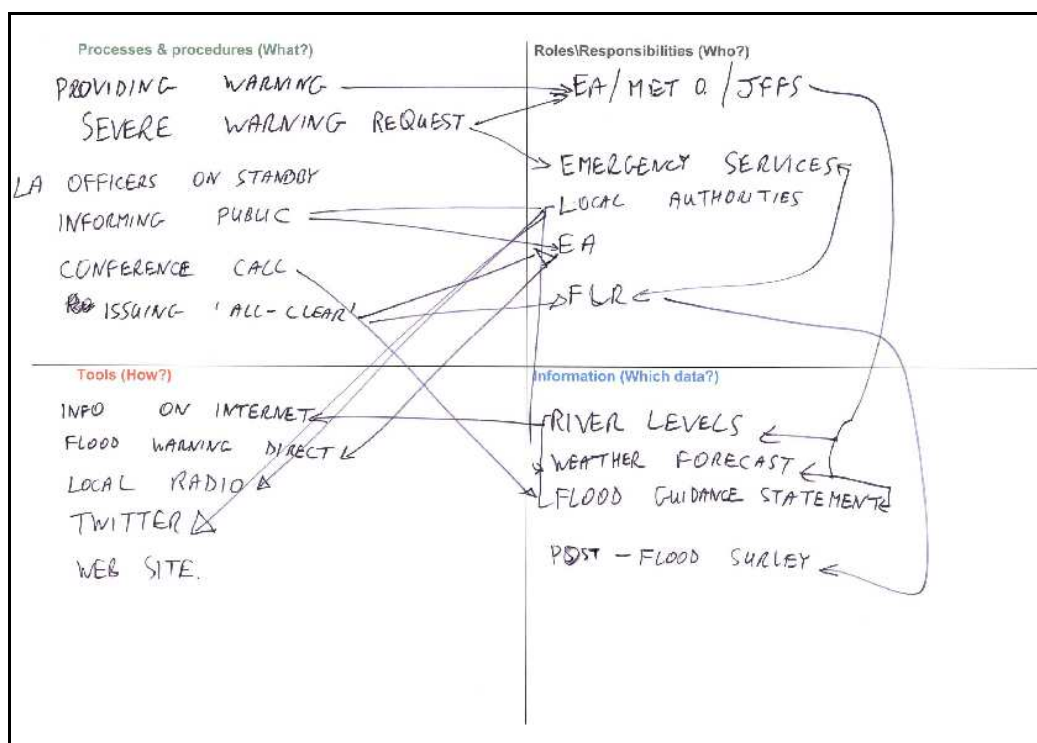 Processes & procedures (What?)
PROVIDING WARNING
SEVERE WARNING REQUEST
LA OFFICERS ON STANDBY
INFORMING PUBLIC
CONFERENCE CALL
ISSUING 'ALL-CLEAR'
Roles\Responsibilities (Who?)
EA/MET O./JFFS
EMERGENCY SERVICES
LOCAL AUTHORITIES
EA
FLR
Tools (How?)
INFO ON INTERNET
FLOOD WARNING DIRECT
LOCAL RADIO
TWITTER
WEB SITE.
Information (Which data?)
RIVER LEVELS
WEATHER FORECAST
FLOOD GUIDANCE STATEMENT
POST-FLOOD SURLEY